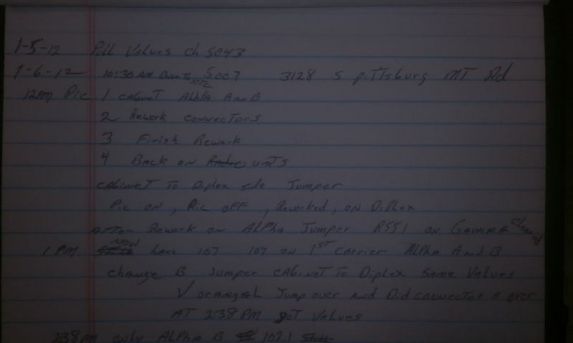 1-5-12 Pull Values Ch 5043
1-6-12 10:30 AM 5007 3128 S pittsburg MT Rd
12PM Pic 1 cabinet Alpha A and B
2 Rework connectors
3 Finish Rework
4 Back on units
cabinet To Diplex Jumper
Pic on, Pic OFF, Reworked, on Diplex
after Rework on Alpha Jumper RSSI on Gamma
1 PM now 107 107 on 1ST Carrier Alpha A and B
change B Jumper cabinet To Diplex Same Values
Jump over and Did connector over
AT 238 PM got values
238 PM only Alpha B 102.1